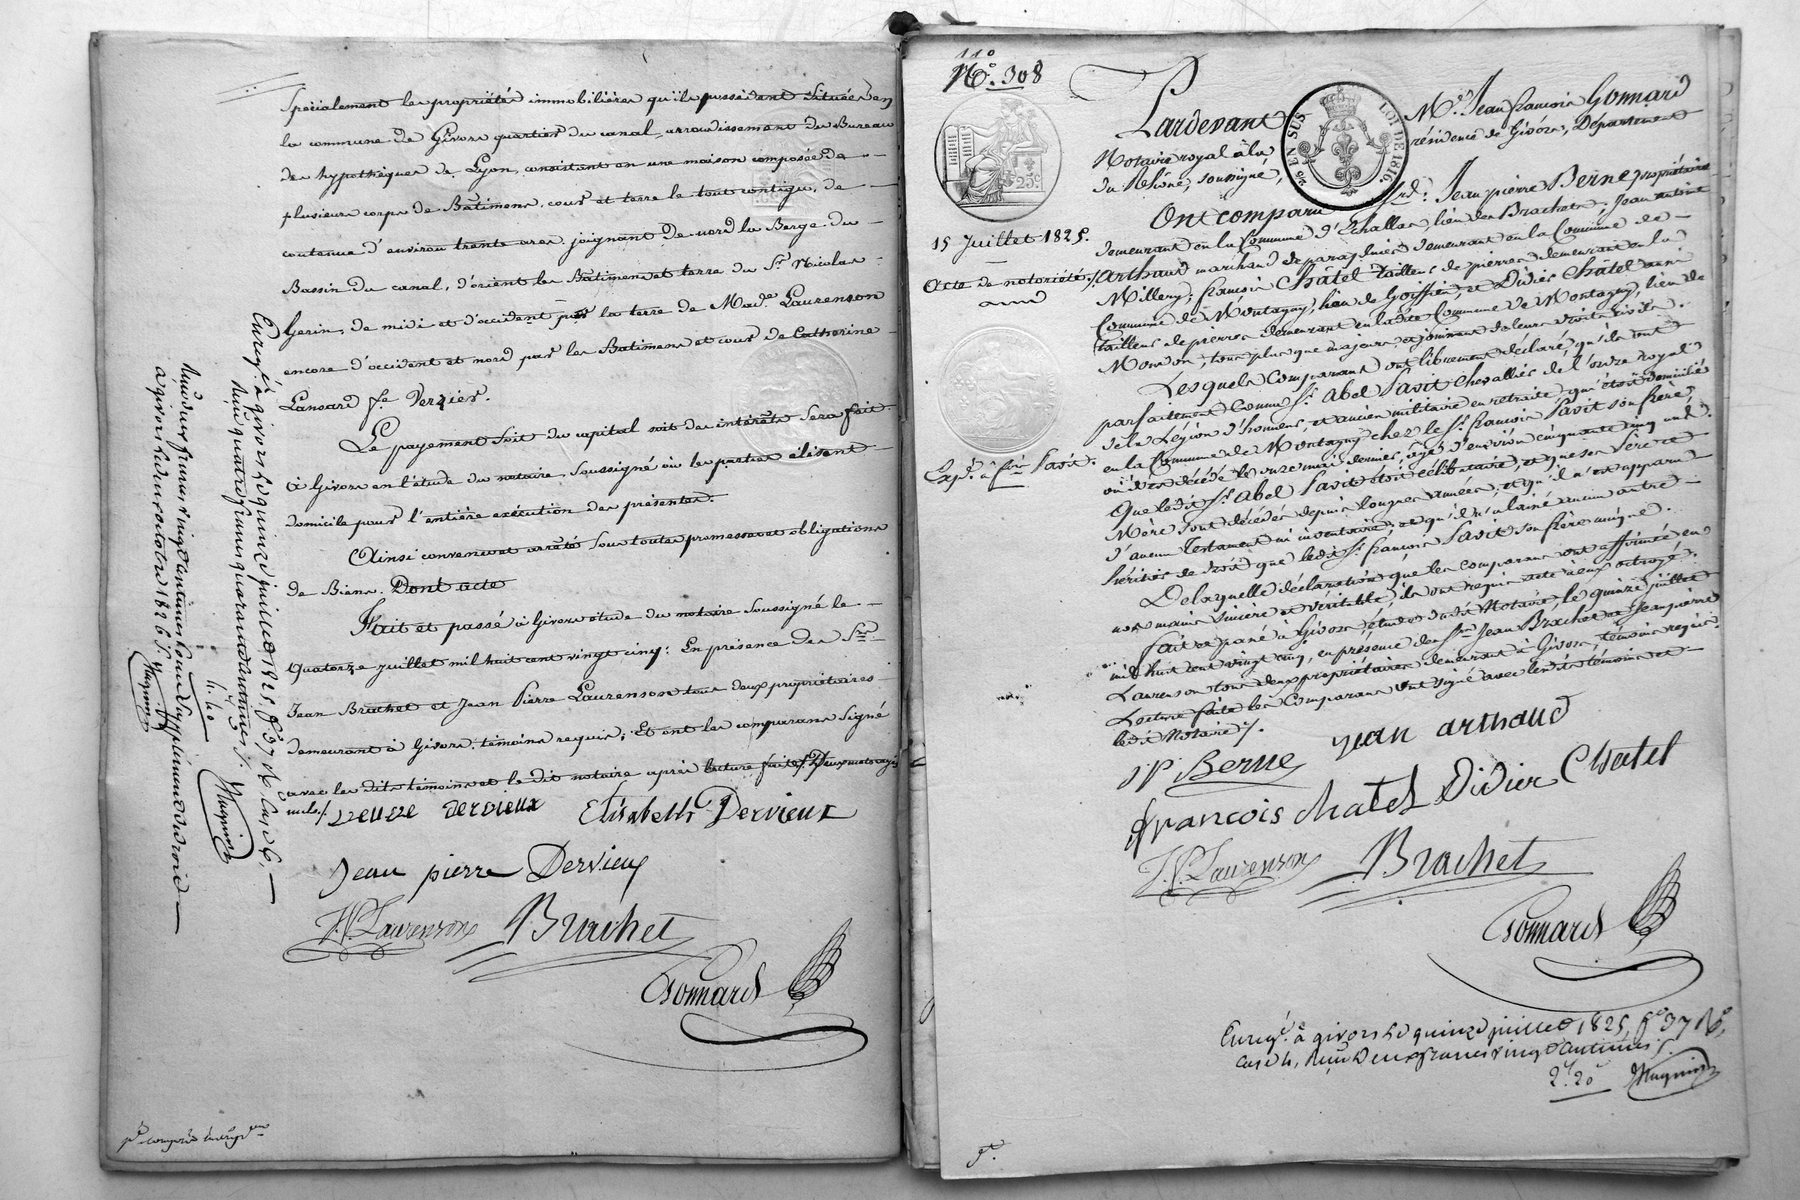 Spécialement les propriétés immobilières qu'ils possèdent situées en
la commune de Givors quartier du canal, arrondissement du Bureau
des hypothèques de Lyon, consistant en une maison composée de
plusieurs corps de Bâtimens, cour et terre le tout contigu, de
contenue d'environ trente ares, joignant de nord la Berge du
Bassin du canal, d'orient les Bâtimens et terre du Sr. Nicolas
Gerin, de midi et d'occident par la terre de Made. Laurenson
encore d'occident et nord par les Batimens et cour de Catherine
Lansard fe. Verzier.
Le payement soit du capital soit des intérêts sera fait
à Givors en l'étude du notaire soussigné où les parties élisent
domicile pour l'entière exécution des présentes.
Ainsi convenu et arrêté sous toutes promesses et obligations
de Biens. Dont acte
Fait et passé à Givors étude du notaire soussigné le
Quatorze juillet mil huit cent vingt cinq; En présence des Srs.
Jean Brachet et Jean Pierre Laurenson tous deux propriétaires
demeurant à Givors, témoins requis; Et ont les comparans signé
avec les dits témoins et le dit notaire après lecture faite
Veuve dervieux Elisabeth Dervieux
Jean pierre Dervieux
J.P. Laurenson Brachet
Gonnard
Enregé. à givors le quinze juillet 1825 fo 37 Vo
Reçu quatre francs quarante centimes
4. 40
Huguin
Reçu deux francs vingt centimes pour supplément de droit
a givors le
1826
Huguin
No. 308
11o
EN SUS
LOI DE 1816.
25c
Pardevant Me. Jean françois Gonnard
Notaire royal à la résidence de Givors, Département
du Rhône, soussigné,
15 Juillet 1825.
Acte de notoriété
Ont comparu Srs. Jean pierre Berne propriétaire
demeurant en la Commune d'Echallas, lieu des Brachets, Jean antoine
Arthaud marchand de parapluies demeurant en la Commune de
Millery, françois Châtel tailleur de pierres demeurant en la
Commune de Montagny, lieu de Goiffieu, et Didier Châtel aussi
tailleur de pierres demeurant en ladite Commune de Montagny, lieu de
tous plus que majeurs et jouissant de leurs droits civils.
Lesquels comparans ont librement déclaré qu'ils ont
parfaitement connu Sr. Abel Pavit Chevallier de l'ordre royal
de la Légion d'honneur, et ancien militaire en retraite, qui étoit domicilié
en la Commune de Montagny chez le Sr. françois Pavit son frère,
où il est décédé le onze mai dernier, agé d'environ cinquante cinq ans.
Que ledit Sr. Abel Pavit étoit célibataire, et que ses Père et
Mère sont décédés depuis longues années, et qu'il n'est apparu
d'aucun Testament ni inventaire, et qu'il n'a laissé aucun autre
héritier de droit que ledit Sr. françois Pavit son frère unique.
Expé. à fçois Pavit.
De laquelle déclaration que les comparans ont affirmée en
nos mains sincère et véritable, ils ont requis acte à eux octroyé.
fait et passé à Givors, étude dudit Notaire, le quinze juillet
mil huit cent vingt cinq, en présence des Srs. Jean Brachet et Jean pierre
Laurenson tous deux propriétaires demeurant à Givors, témoins requis.
Lecture faite les Comparans ont signé avec lesdits témoins et
ledit Notaire.
JP Berne Jean arthaud
françois Chatel Didier Chatel
J.P. Laurenson Brachet
Gonnard
Enregé. à givors le quinze juillet 1825, fo 37 Vo,
case 4, Reçu deux francs vingt centimes
2. 20 Huguin